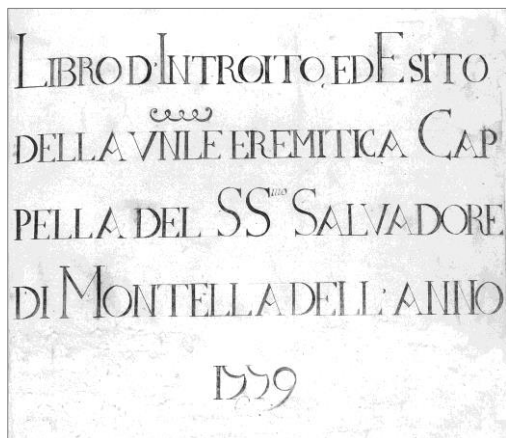 LIBRO D'INTROITO, ED ESITO
DELLA VNLE EREMITICA CAP
PELLA DEL SSmo SALVADORE
DI MONTELLA DELL'ANNO
1779